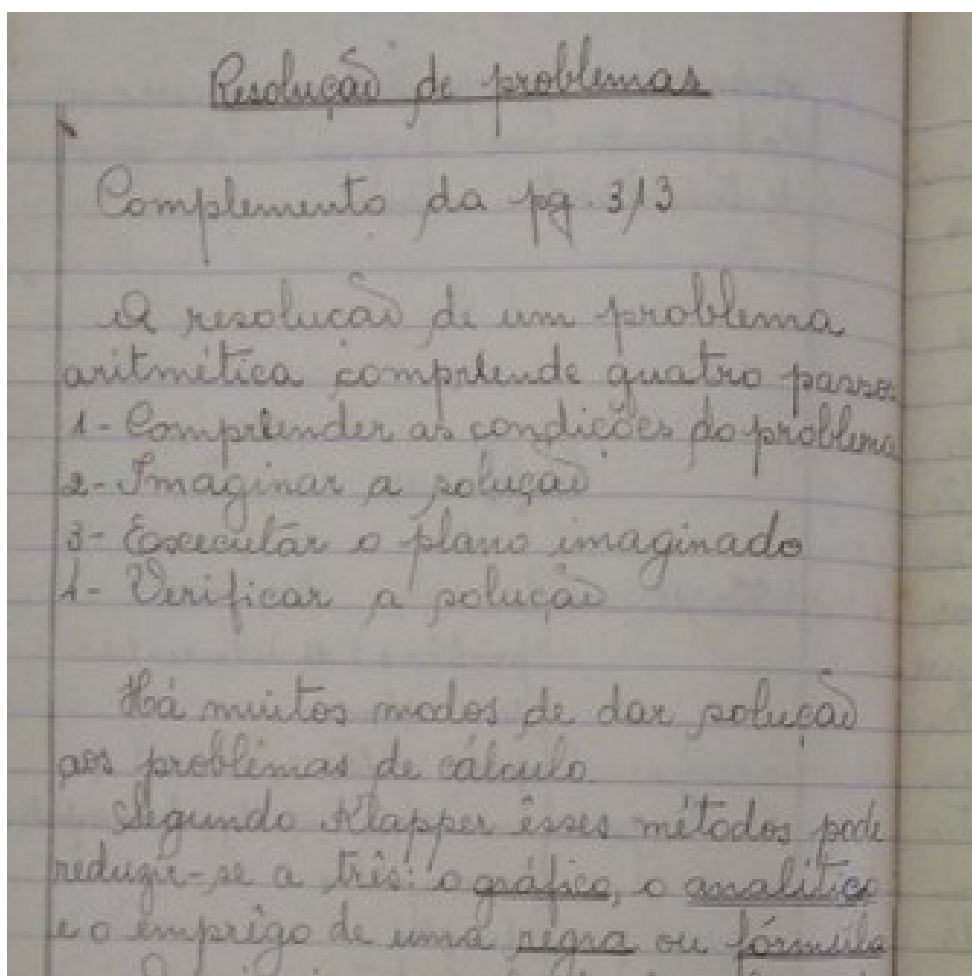 Resolução de problemas
Complemento da pg. 313
A resolução de um problema
aritmética compreende quatro passos
1- Comprender as condições do problema
2- Imaginar a solução
3- Executar o plano imaginado
4- Verificar a solução
Há muitos modos de dar solução
aos problemas de cálculo.
Segundo Klapper êsses métodos pode
reduzir-se a três: o gráfico, o analítico
e o emprêgo de uma regra ou fórmula